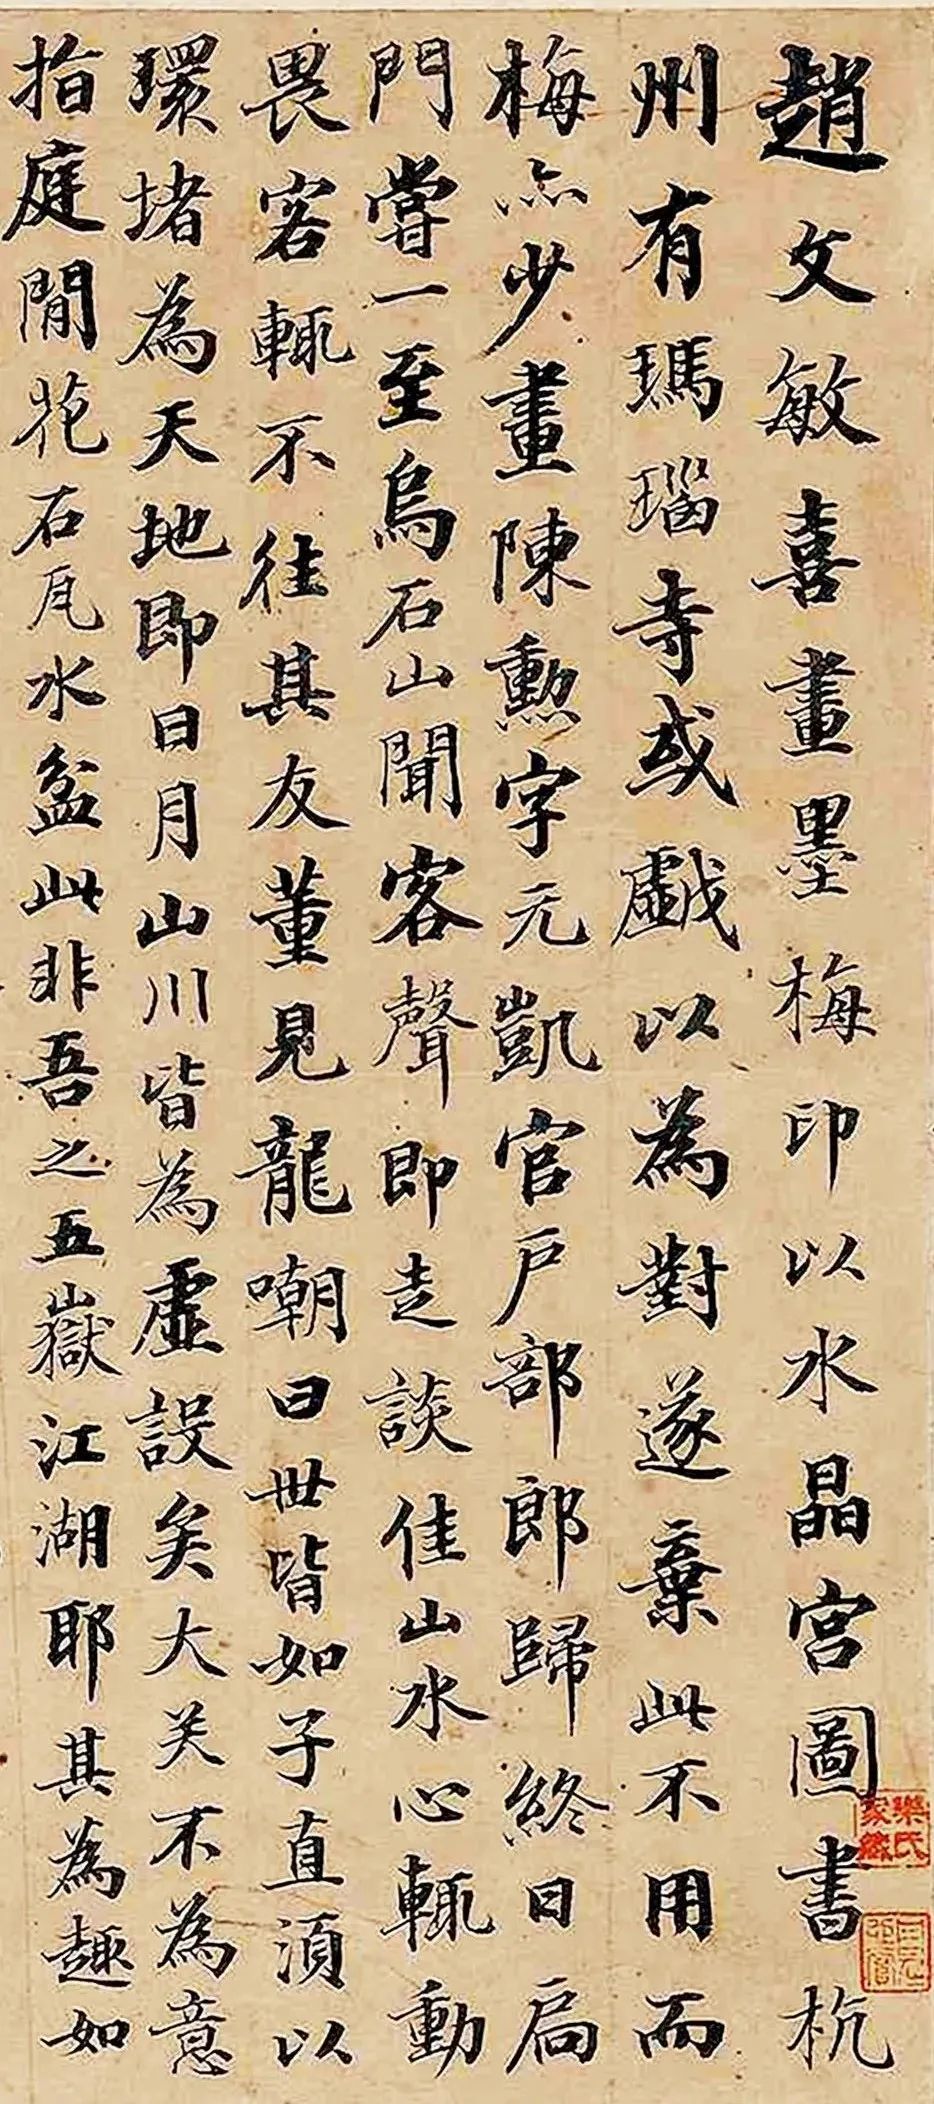 趙文敏喜畫墨梅印以水晶宮圖書杭
州有瑪瑙寺或戲以為對遂棄此不用而
梅亦少畫陳勳字元凱官戶部郎歸終日扃
門嘗一至烏石山聞客聲即走談佳山水心輒動
畏客輒不往其友董見龍嘲曰世皆如子直須以
環堵為天地即日月山川皆為虛設矣大笑不為意
指庭閒花石瓦水盆此非吾之五嶽江湖耶其為趣如